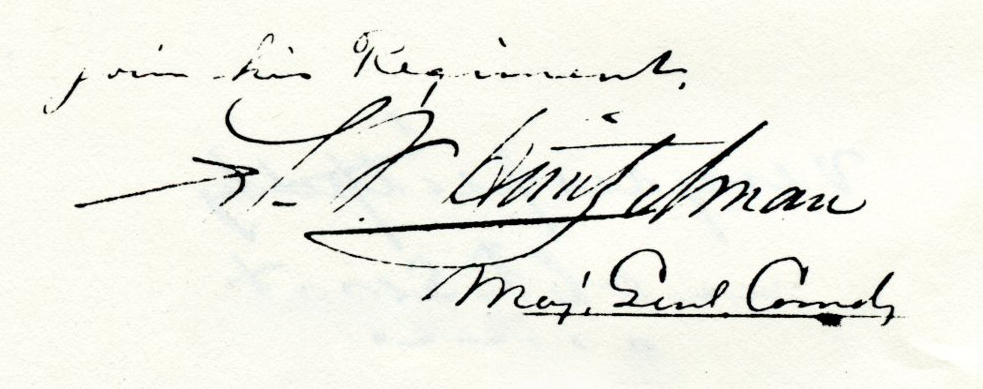 join his Regiment,
S. P. Heintzelman
Maj. Genl. Comdg